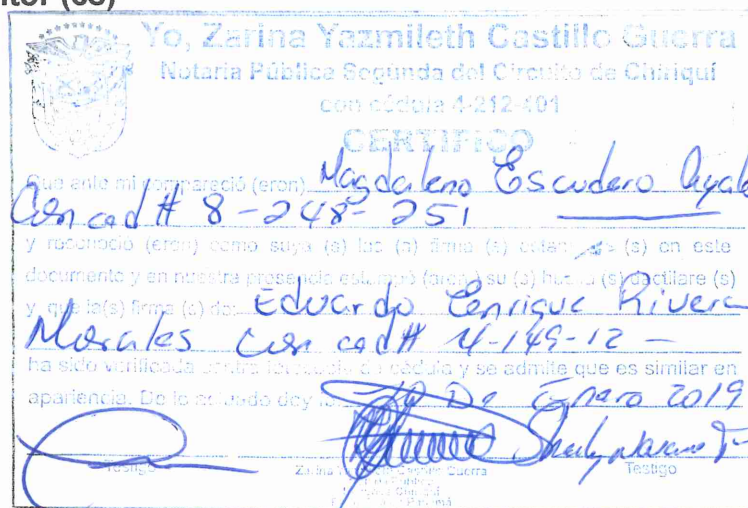 Yo, Zarina Yazmileth Castillo Guerra
Notaria Pública Segunda del Circuito de Chiriquí
con cédula 4-212-401
CERTIFICO
Que ante mi compareció (eron) Magdaleno Escudero Ayala
Con ced # 8-248-251
y reconoció (eron) como suya (s) las (s) firma (s) (s) en este
documento y en nuestra presencia (aron) su (s) (s) dactilare (s)
y que la(s) firma (s) de: Eduardo Enrique Rivera
Morales con ced# 4-149-12 -
ha sido verificada cédula y se admite que es similar en
apariencia. De lo doy De Enero 2019
Testigo Guerra Testigo